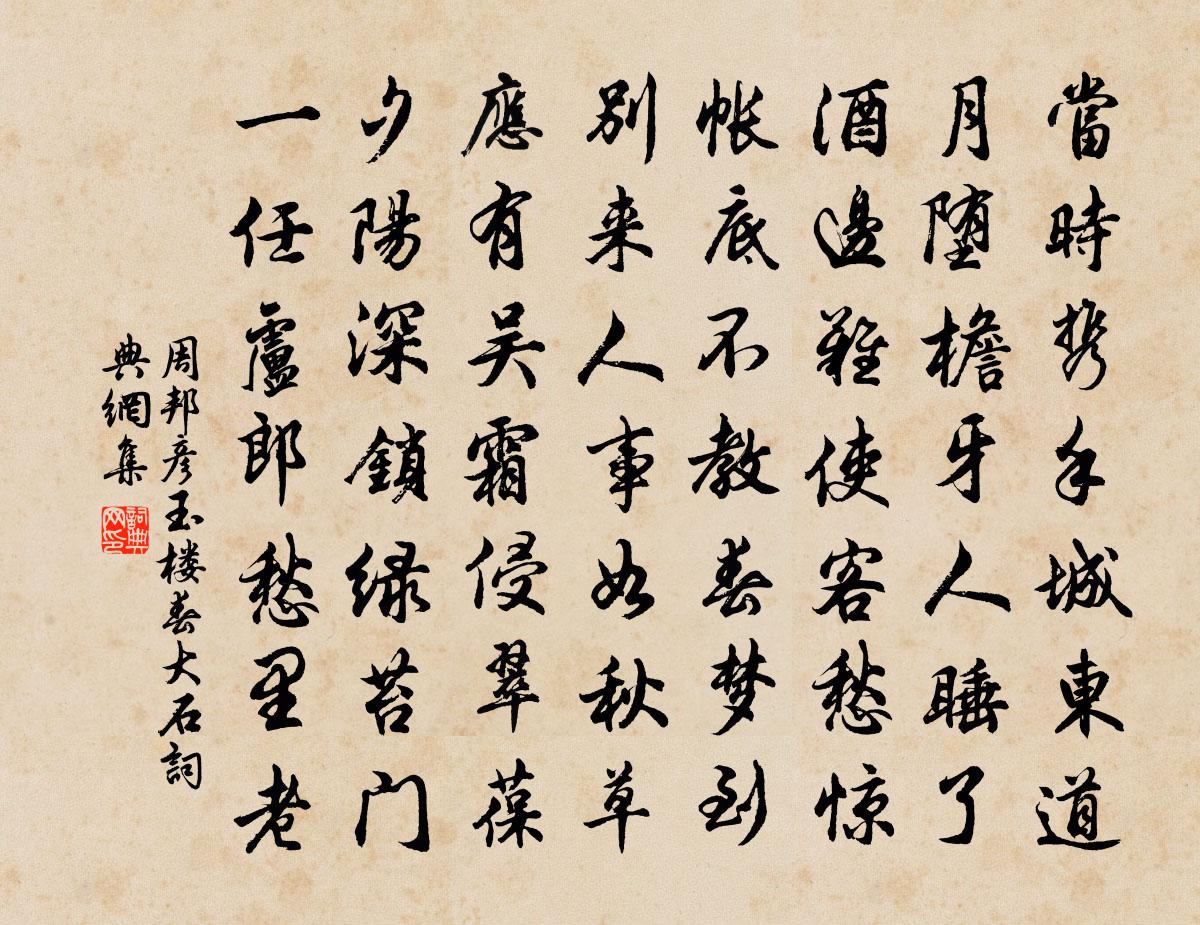 當時携手城東道
月堕檐牙人睡了
酒邊難使客愁惊
帐底不教春梦到
别来人事如秋草
應有吴霜侵翠葆
夕陽深鎖緑苔门
一任盧郎愁里老
周邦彦玉楼春大石詞
典網集
詞典网印